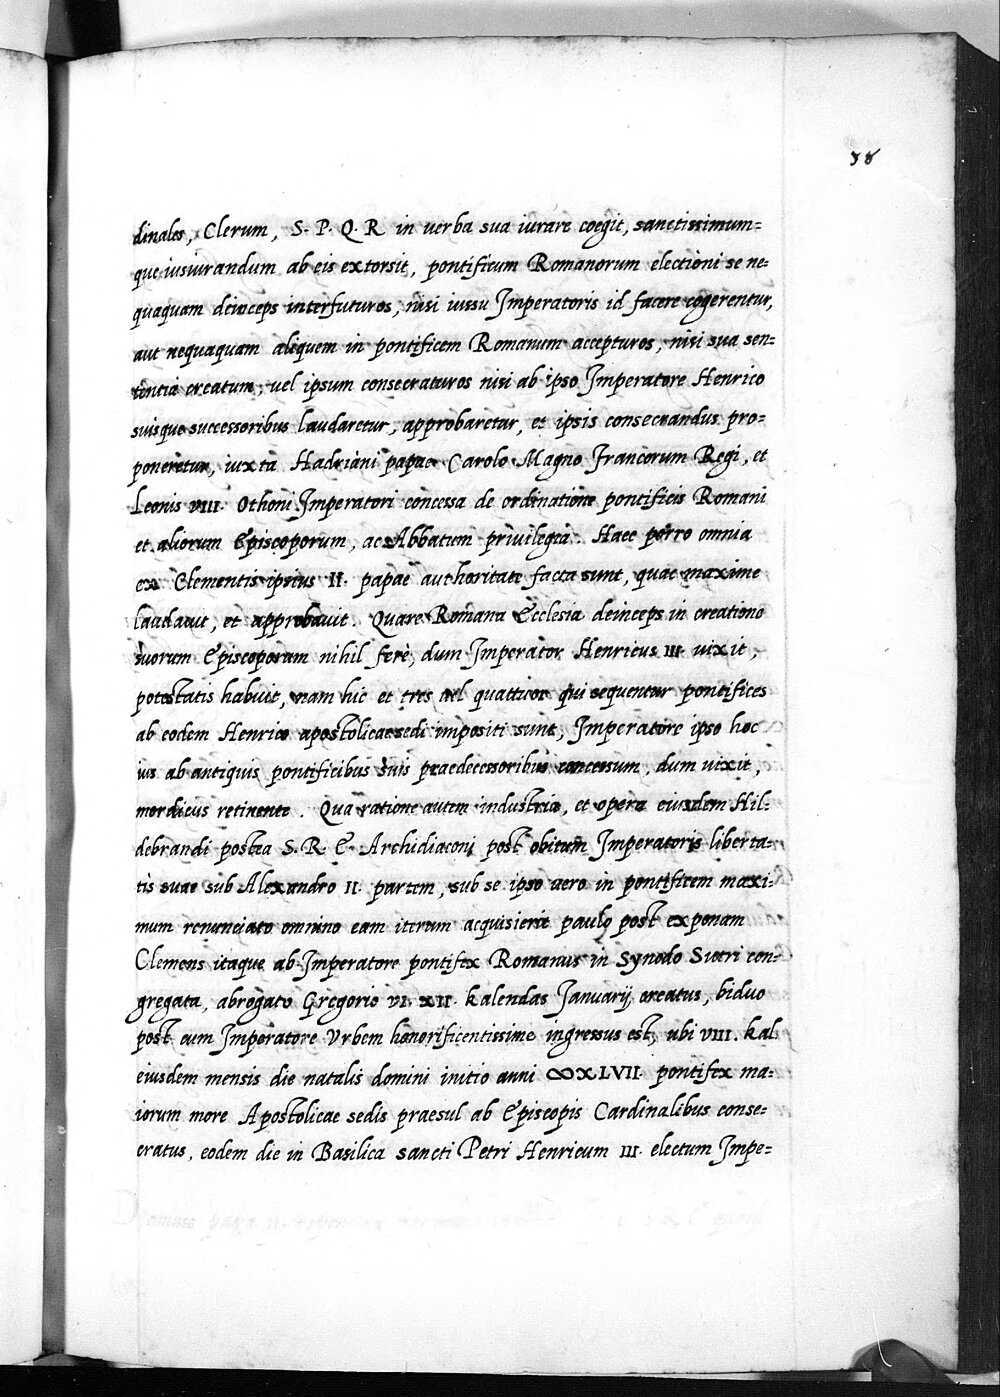 38
dinales, Clerum, S. P. Q. R in uerba sua iurare coegit, sanctissimum=
que iusiurandum ab eis extorsit, pontificum Romanorum electioni se ne=
quaquam deinceps interfuturos, nisi iussu Imperatoris id facere cogerentur,
aut nequaquam aliquem in pontificem Romanum accepturos, nisi sua sen=
tentia creatum, uel ipsum consecraturos nisi ab ipso Imperatore Henrico
suisque successoribus laudaretur, approbaretur, et ipsis consecrandus pro=
poneretur, iuxta Hadriani papae Carolo Magno Francorum Regi, et
Leonis VIII. Othoni Imperatori concessa de ordinatione pontificis Romani
et aliorum Episcoporum, ac Abbatum priuilegia. Haec porro omnia
ex Clementis ipsius II. papae authoritate facta sunt, quae maxime
laudauit, et approbauit. Quare Romana Ecclesia deinceps in creatione
suorum Episcoporum nihil ferè, dum Imperator Henricus III uixit,
potestatis habuit, nam hic et tres uel quattuor qui sequentur pontifices
ab eodem Henrico apostolicae sedi impositi sunt, Imperatore ipso hoc
ius ab antiquis pontificibus suis praedecessoribus concessum, dum uixit,
mordicus retinente. Qua ratione autem industria, et opera eiusdem Hil=
debrandi postea S. R. E. Archidiaconi post obitum Imperatoris liberta=
tis suae sub Alexandro II. partem, sub se ipso uero in pontificem maxi=
mum renunciato omnino eam iterum acquisierit paulo post exponam
Clemens itaque ab Imperatore pontifex Romanus in Synodo Sutri con=
gregata, abrogato Gregorio VI. XII. kalendas Januarij creatus, biduo
post cum Imperatore Vrbem honorificentissime ingressus est, ubi VIII. kal.
eiusdem mensis die natalis domini initio anni ∞XLVII. pontifex ma=
iorum more Apostolicae sedis praesul ab Episcopis Cardinalibus conse=
cratus, eodem die in Basilica sancti Petri Henricum III. electum Impe=